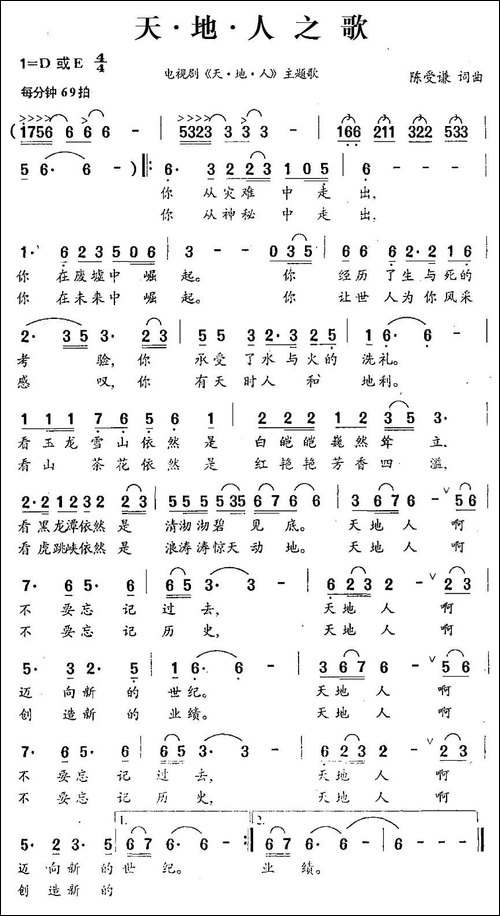 天·地·人之歌
1=D 或 E 4/4
电视剧《天·地·人》主题歌
陈受谦 词曲
每分钟 69 拍
(1756 6 6 6 - | 5323 3 3 3 - | 166 211 322 533 |
5 6· 6 - - ) ‖: 6· 3 2 2 3 1 0 5 | 6 - - - |
你 从灾难 中走出,
你 从神秘 中走出,
1· 6 2 3 5 0 6 | 3 - - 0 3 5 | 6 6 6 2·2 1 6 |
你 在废墟中 崛起。 你 经历了生与死的
你 在未来中 崛起。 你 让世人为你风采
2· 3 5 3· 2 3 | 5 5 3 2·3 2 5 | 1 6· 6 - |
考 验,你 承受了水与火的 洗礼。
感 叹,你 有天时人 和 地利。
1 1 1 7 6 5 6 1 | 2 2 2 1 2 3 5 3· |
看玉龙雪山依然是 白皑皑巍然耸立,
看山 茶花依然是 红艳艳芳香四溢,
2·2 1232 2 2 3 | 5 5 5 535 6 7 6 6 | 3 6 7 6 - ∨ 5 6 |
看黑龙潭依然是 清泐泐碧 见底。 天地人 啊
看虎跳峡依然是 浪涛涛惊天动地。 天地人 啊
7· 6 5· 6 | 6 5 3· 3 - | 6 2 3 2 - ∨ 2 3 |
不要忘记过去, 天地人 啊
不要忘记历史, 天地人 啊
5· 3 2· 5 | 1 6· 6 - | 3 6 7 6 - ∨ 5 6 |
迈向新的世纪。 天地人 啊
创造新的业绩。 天地人 啊
7· 6 5· 6 | 6 5 3· 3 - | 6 2 3 2 - ∨ 2 3 |
不要忘记过去, 天地人 啊
不要忘记历史, 天地人 啊
1. 2.
5· 2 3· 5 | 6 7 6· 6 - :‖ 6 7 6· 6 - | 6 - - - ‖
迈向新的世纪。 业绩。
创造新的